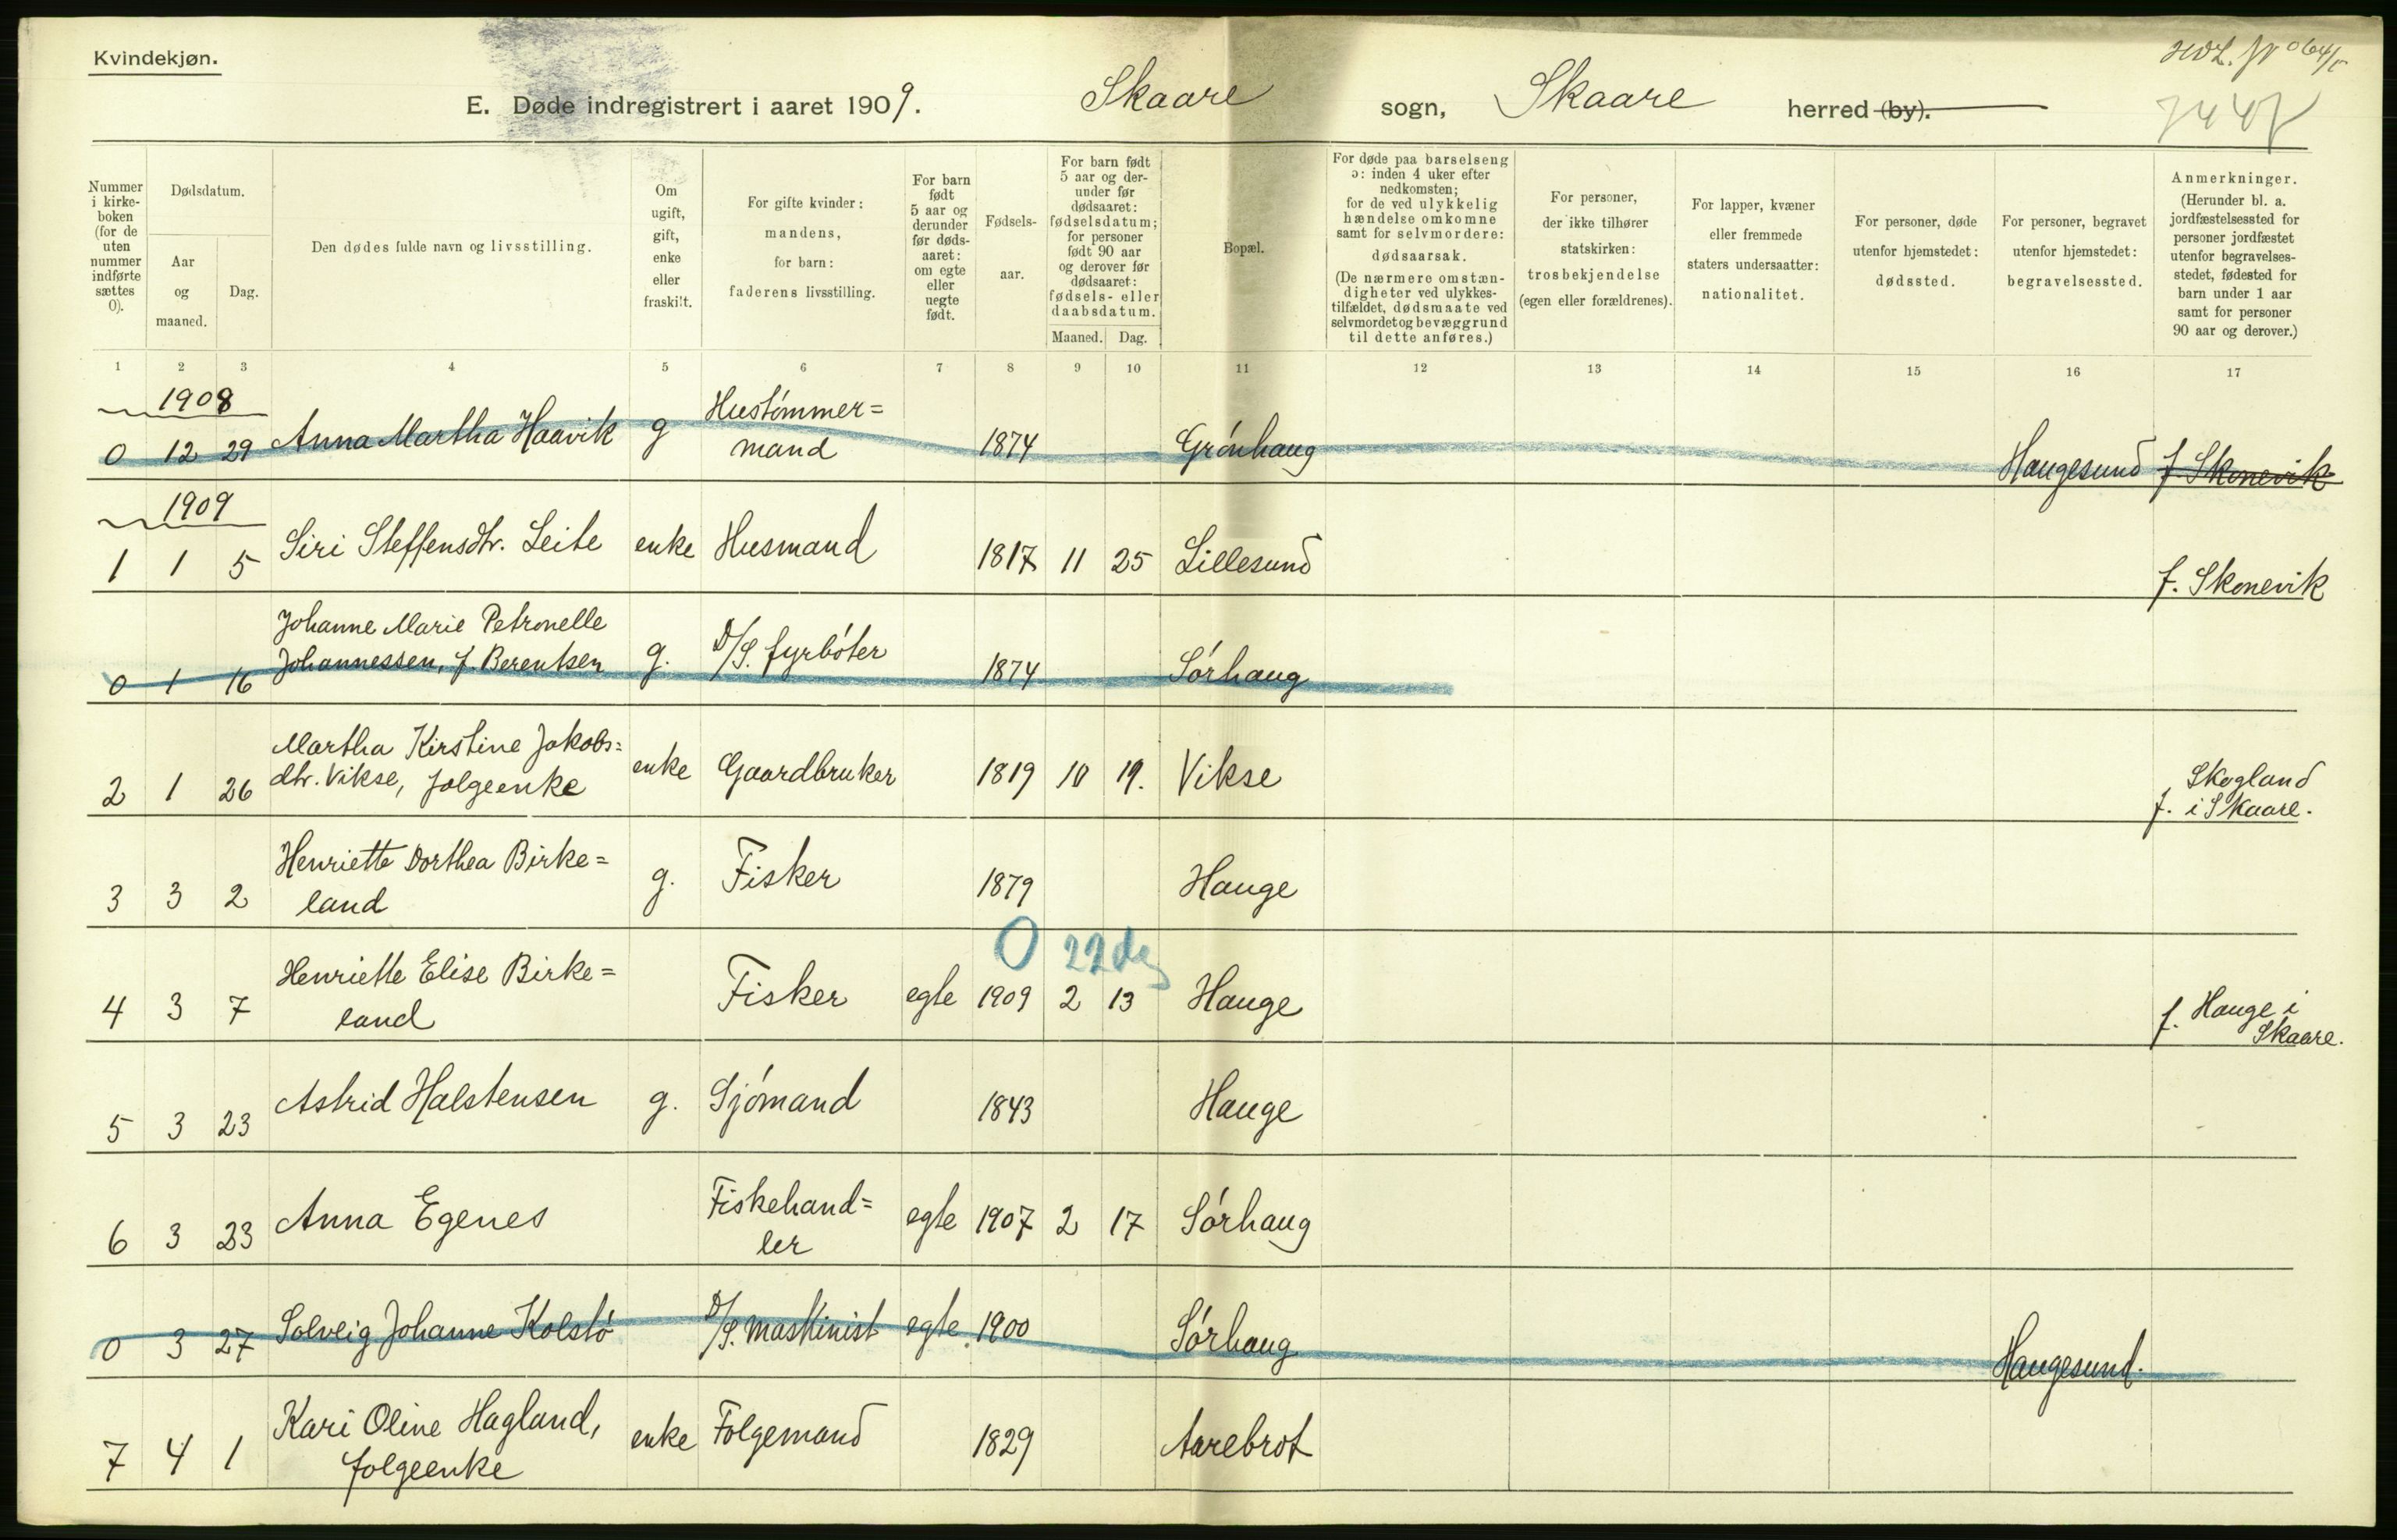 Kvindekjøn.
E. Døde indregistrert i aaret 1909. Skaare sogn, Skaare herred (by).
7447
Nummer i kirke-boken (for de uten nummer indførte sættes 0).
Dødsdatum.
Aar og maaned.
Dag.
Den dødes fulde navn og livsstilling.
Om ugift, gift, enke eller fraskilt.
For gifte kvinder: mandens, for barn: faderens livsstilling.
For barn født 5 aar og derunder før døds-aaret: om egte eller uegte født.
Fødsels-aar.
For barn født 5 aar og der-under før dødsaaret: fødselsdatum; for personer født 90 aar og derover før dødsaaret: fødsels- eller daabsdatum.
Maaned. Dag.
Bopæl.
For døde paa barselseng ɔ: inden 4 uker efter nedkomsten; for de ved ulykkelig hændelse omkomne samt for selvmordere: dødsaarsak. (De nærmere omstæn-digheter ved ulykkes-tilfældet, dødsmaate ved selvmordet og bevæggrund til dette anføres.)
For personer, der ikke tilhører statskirken: trosbekjendelse (egen eller forældrenes).
For lapper, kvæner eller fremmede staters undersaatter: nationalitet.
For personer, døde utenfor hjemstedet: dødssted.
For personer, begravet utenfor hjemstedet: begravelsessted.
Anmerkninger. (Herunder bl. a. jordfæstelsessted for personer jordfæstet utenfor begravelses-stedet, fødested for barn under 1 aar samt for personer 90 aar og derover.)
1 2 3 4 5 6 7 8 9 10 11 12 13 14 15 16 17
1908
0 12 29 Anna Martha Haavik g Hustømmer=
mand 1874 Grønhaug Haugesund f. Skonevik
1909
1 1 5 Siri Steffensdtr. Leite enke Husmand 1817 11 25 Lillesund f. Skonevik
Johanne Marie Petronelle
0 1 16 Johannessen, f. Berentsen g. D/S. fyrbøter 1874 Sørhaug
Martha Kirstine Jakobs=
2 1 26 dtr. Vikse, folgeenke enke Gaardbruker 1819 10 19. Vikse Skogland
f. i Skaare.
Henriette Dorthea Birke=
3 3 2 land g. Fisker 1879 Hauge
0 22 dg
Henriette Elise Birke=
4 3 7 land Fisker egte 1909 2 13 Hauge f. Hauge i
Skaare.
5 3 23 Astrid Halstensen g. Sjømand 1843 Hauge
6 3 23 Anna Egenes Fiskehand=
ler egte 1907 2 17 Sørhaug
0 3 27 Solveig Johanne Kolstø D/S. maskinist egte. 1900 Sørhaug Haugesund.
Kari Oline Hagland,
7 4 1 folgeenke enke Folgemand 1829 Aarebrot